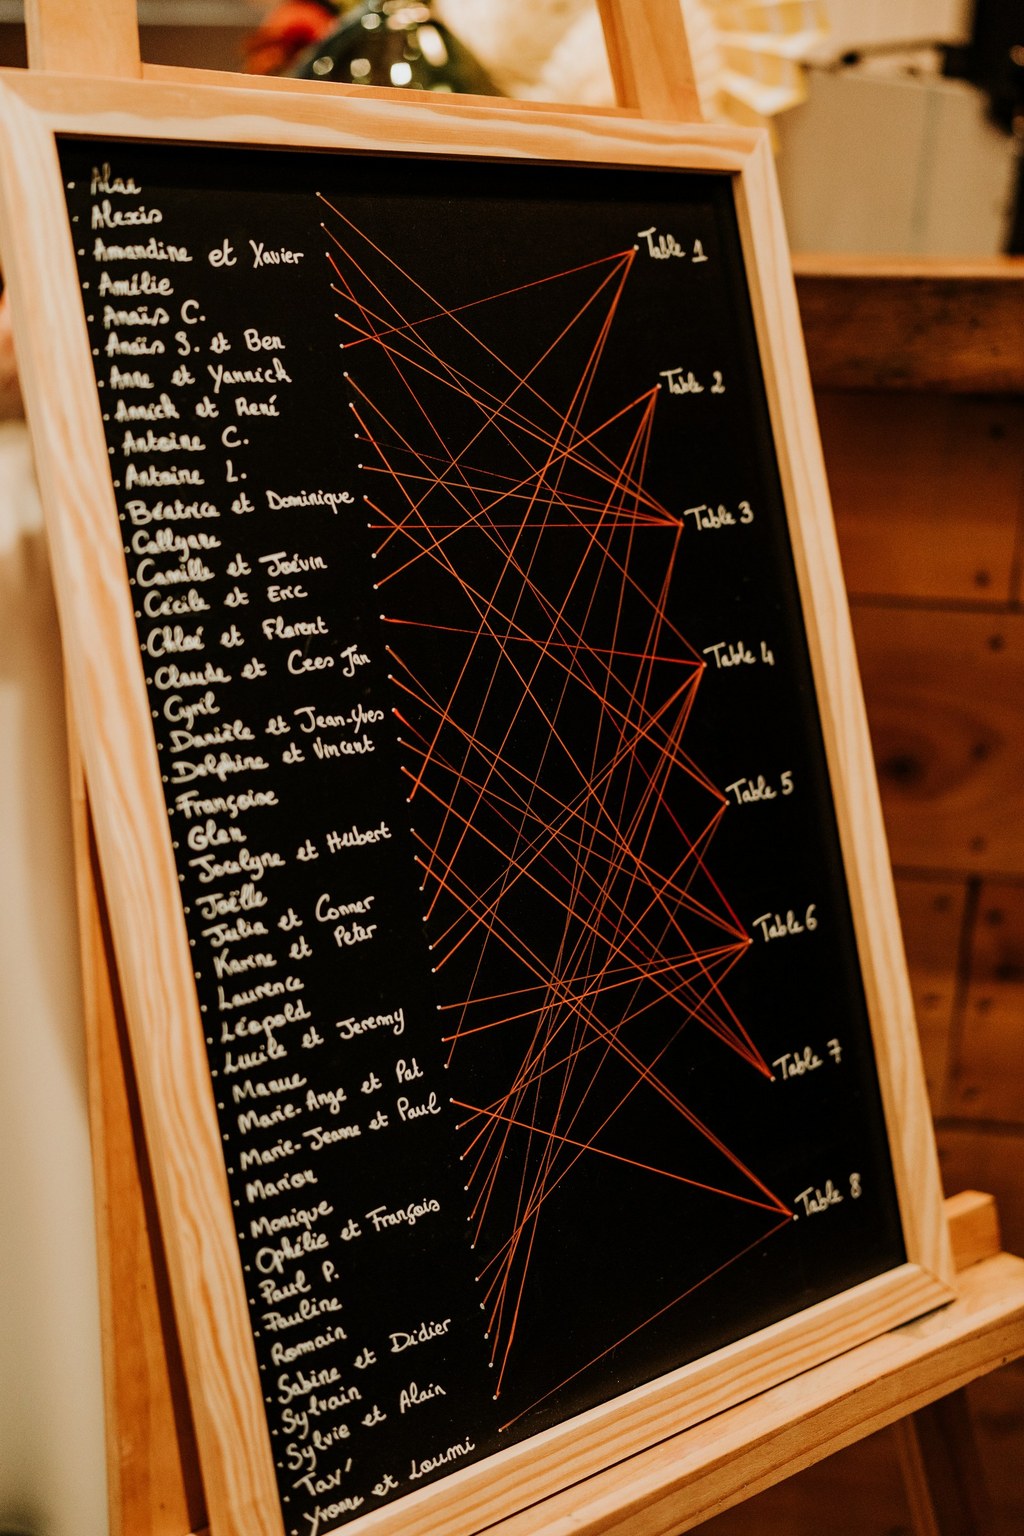 · Alexis
· Amandine et Xavier
· Amélie
· Anaïs C.
· Anaïs S. et Ben
· Anne et Yannick
· Annick et René
· Antoine C.
· Antoine L.
· Béatrice et Dominique
· Callyane
· Camille et Joévin
· Cécile et Eric
· Chloé et Florent
· Claude et Cees Jan
· Cyril
· Danièle et Jean-Yves
· Delphine et Vincent
· Françoise
· Glen
· Jocelyne et Hubert
· Joëlle
· Julia et Conner
· Karine et Peter
· Laurence
· Léopold
· Lucile et Jeremy
· Manue
· Marie-Ange et Pat
· Marie-Jeanne et Paul
· Marion
· Monique
· Ophélie et François
· Paul P.
· Pauline
· Romain
· Sabine et Didier
· Sylvain
· Sylvie et Alain
· Tav'
· Yvonne et Loumi
Table 1
Table 2
Table 3
Table 4
Table 5
Table 6
Table 7
Table 8